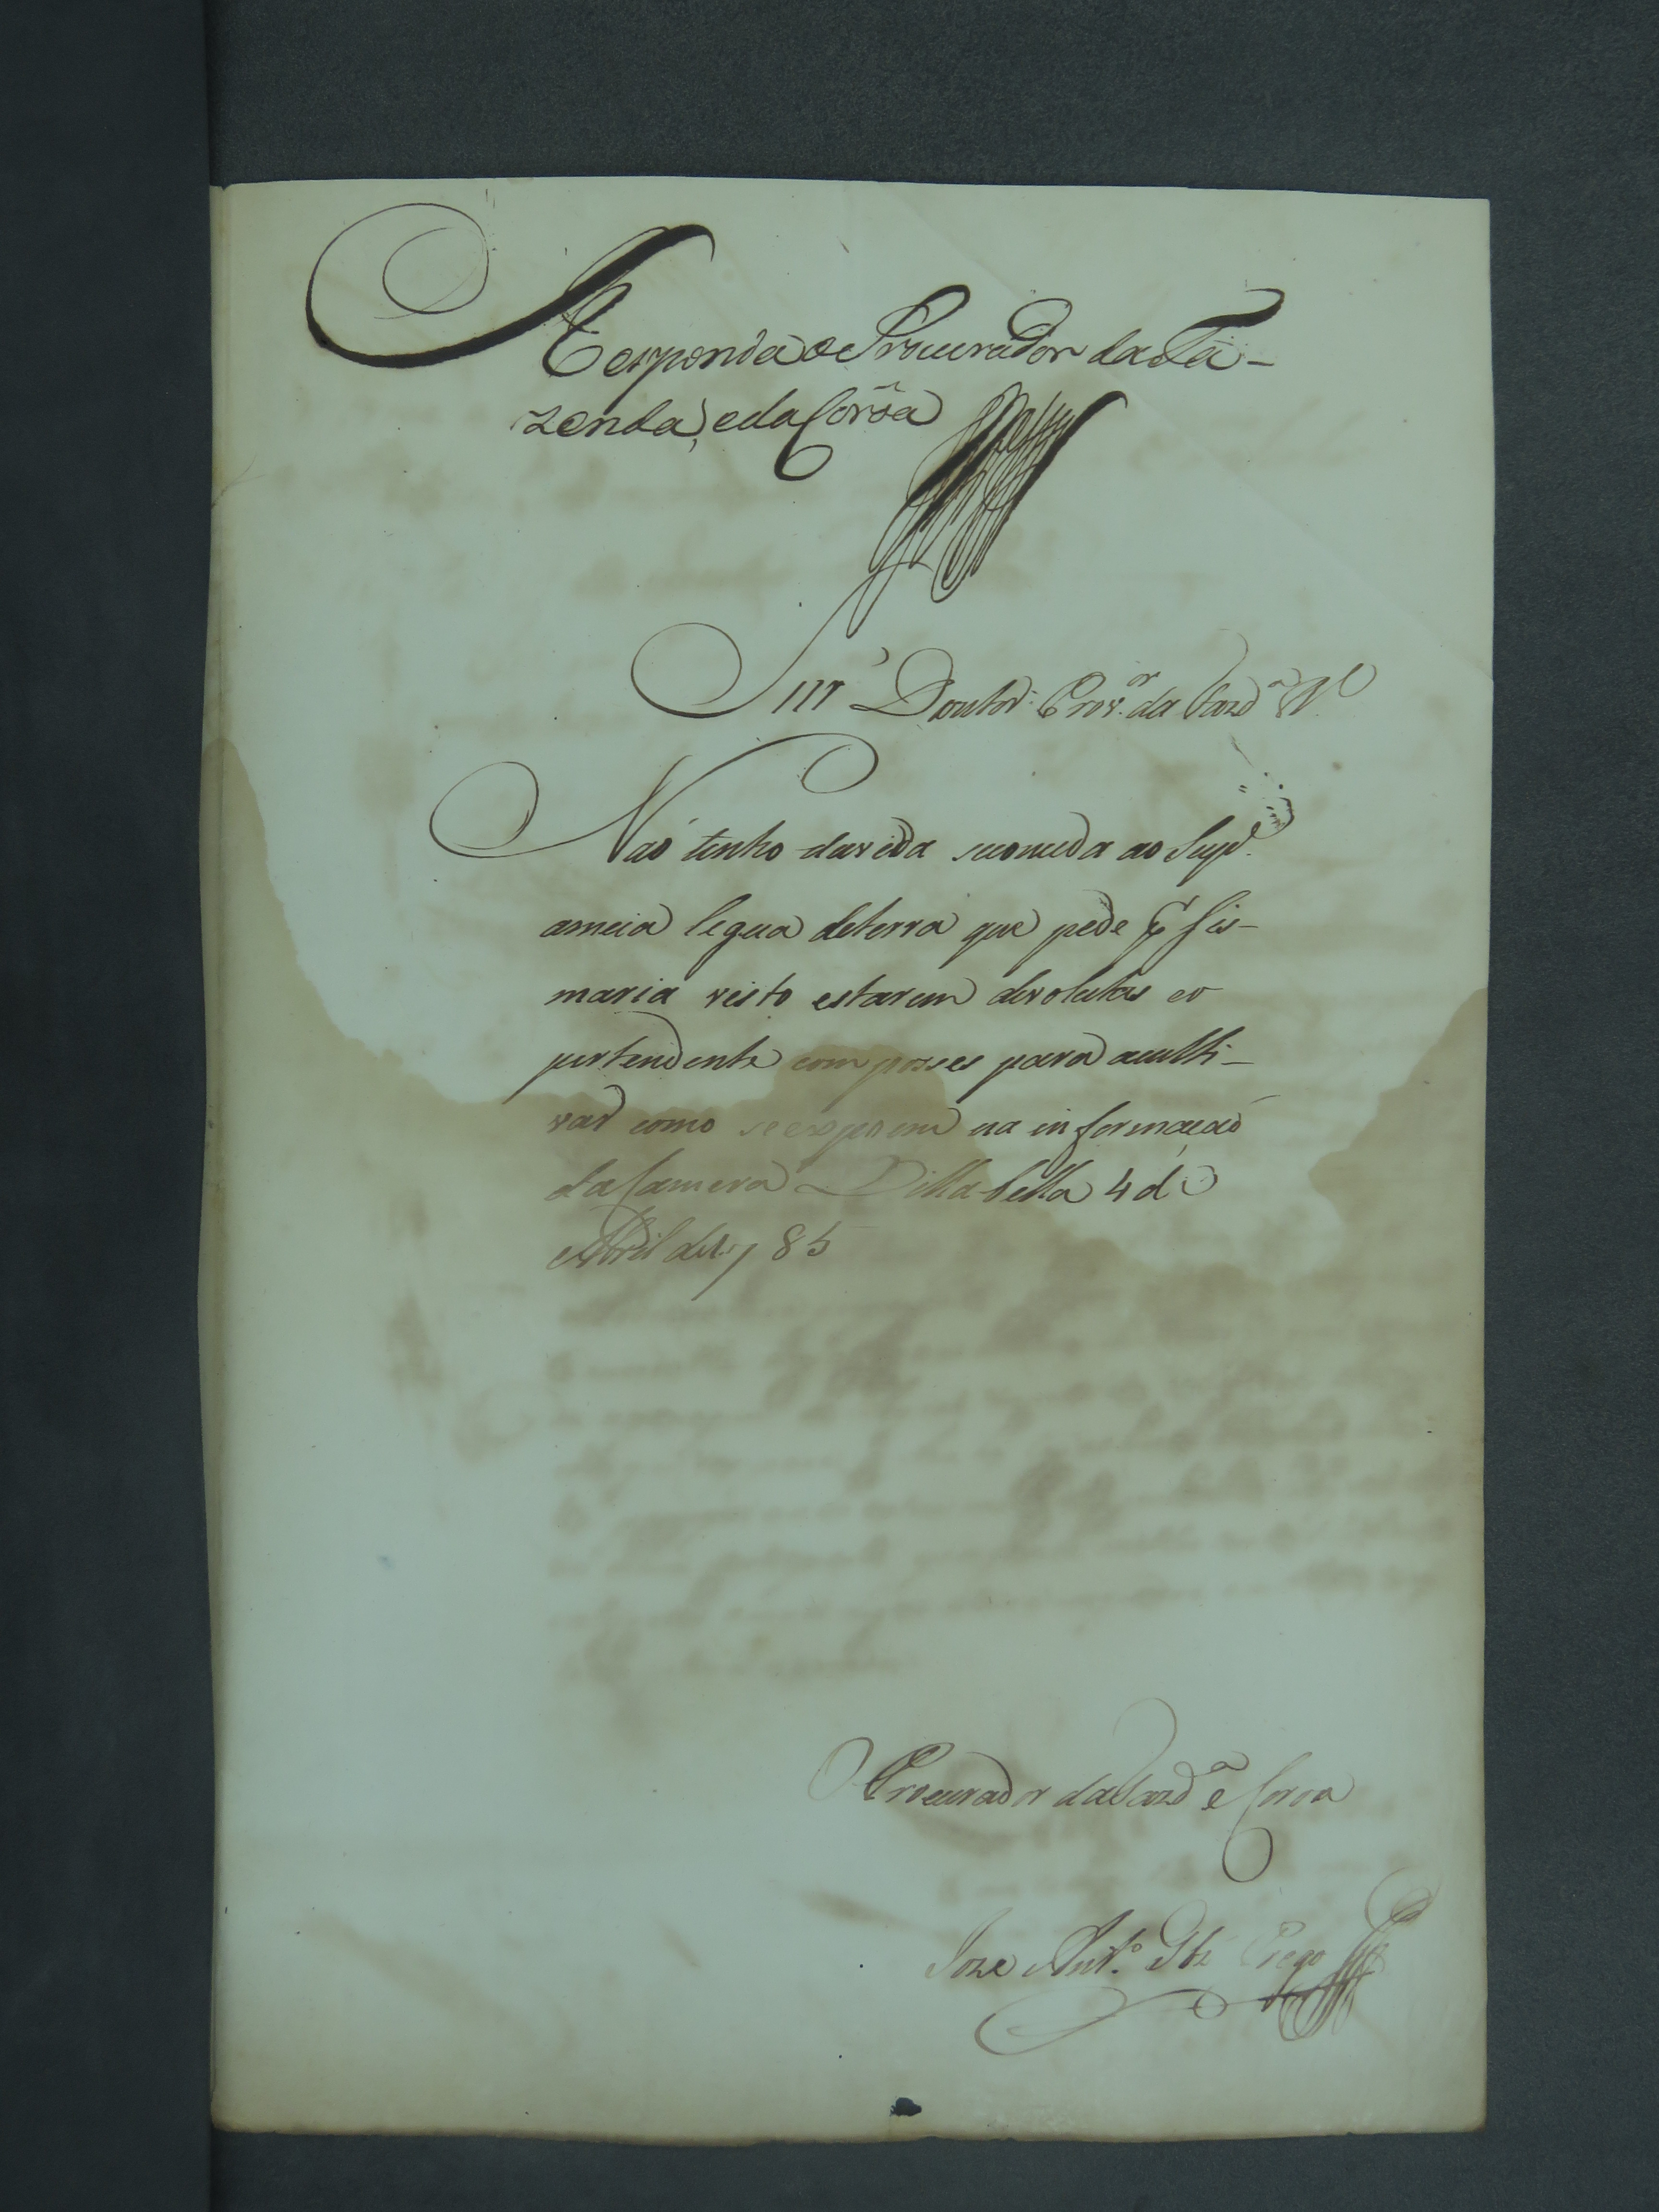 Responda o Procurador da Fa-
zenda, e da Corõa
Snr. Doutor Prov.or da Fazd.a R.l
Naó tenho duvida seconceda ao Sup.e
ameia legua deterra que pede p.r sis-
maria visto estarem devolutas eo
pertendente com posses para aculti-
var como seexpoem na informaçaó
da Camera Villa bella 4 de
Abril de 1785
O Procurador da Fazd.a e Coroa
Joze Ant.o